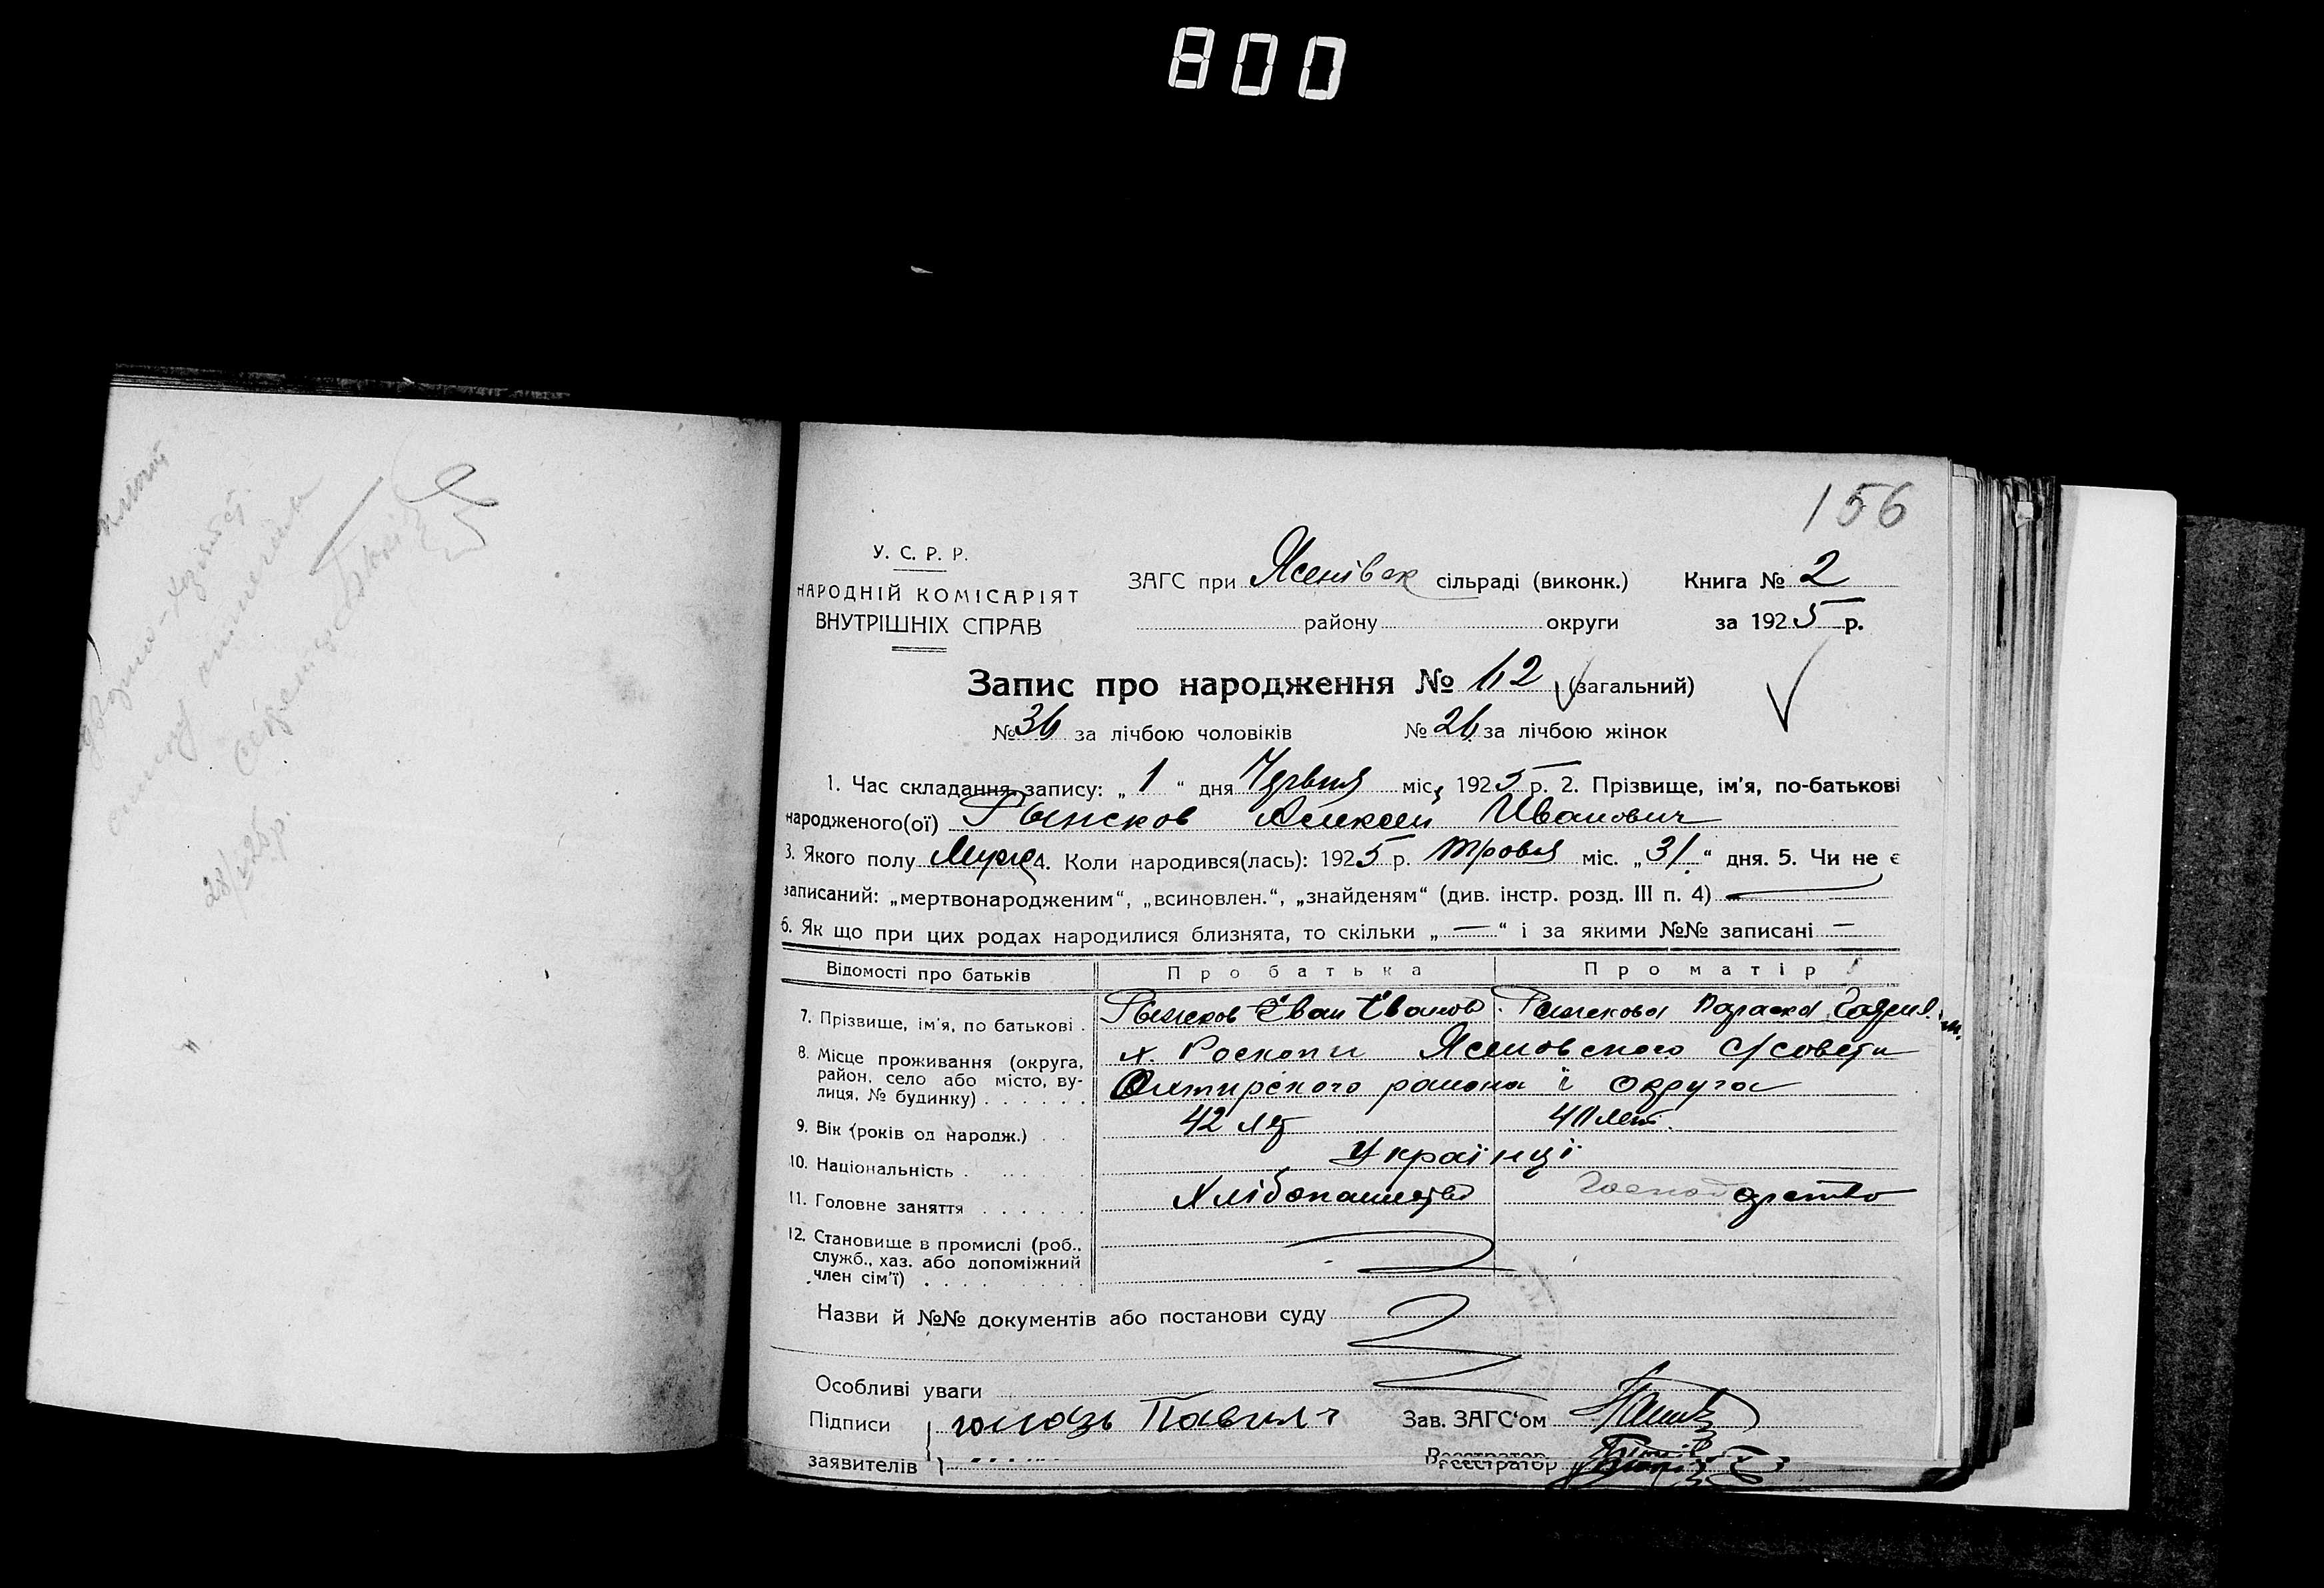 800
156
У. С. Р. Р.
НАРОДНІЙ КОМІСАРІЯТ
ВНУТРІШНІХ СПРАВ
ЗАГС при Ясенівск сільраді (виконк.) Книга № 2
району округи за 1925 р.
Запис про народження № 62 (загальний)
№ 36 за лічбою чоловіків № 26 за лічбою жінок
1. Час складання запису: „ 1 “ дня Червня міс, 1925 р. 2. Прізвище, ім'я, по-батькові
народженого(ої) Рыжков Алексей Иванович
3. Якого полу Муж 4. Коли народився(лась): 1925 р. Травня міс. „ 31 “ дня. 5. Чи не є
записаний: „мертвонародженим“, „всиновлен.“, „знайденям“ (див. інстр. розд. III п. 4) —
6. Як що при цих родах народилися близнята, то скільки „ — “ і за якими №№ записані —
Відомості про батьків Про батька Про матір
7. Прізвище, ім'я, по батькові . Рыжков Іван Іванов. Рыжкова Параска Гаврил.
8. Місце проживання (округа, х. Роскопи Ясеновского с/совету
район, село або місто, ву-
лиця, № будинку) . . . . . . Охтирского района і округа
9. Вік (років од народж.) . . 42 лет 40 лет.
10. Національність . Українці
11. Головне заняття . . . . . . Хлібопашество Господарство
12. Становище в промислі (роб..
служб., хаз. або допоміжний
член сім'ї)
Назви й №№ документів або постанови суду
Особливі уваги
Підписи Зав. ЗАГС'ом
заявителів Реєстратор